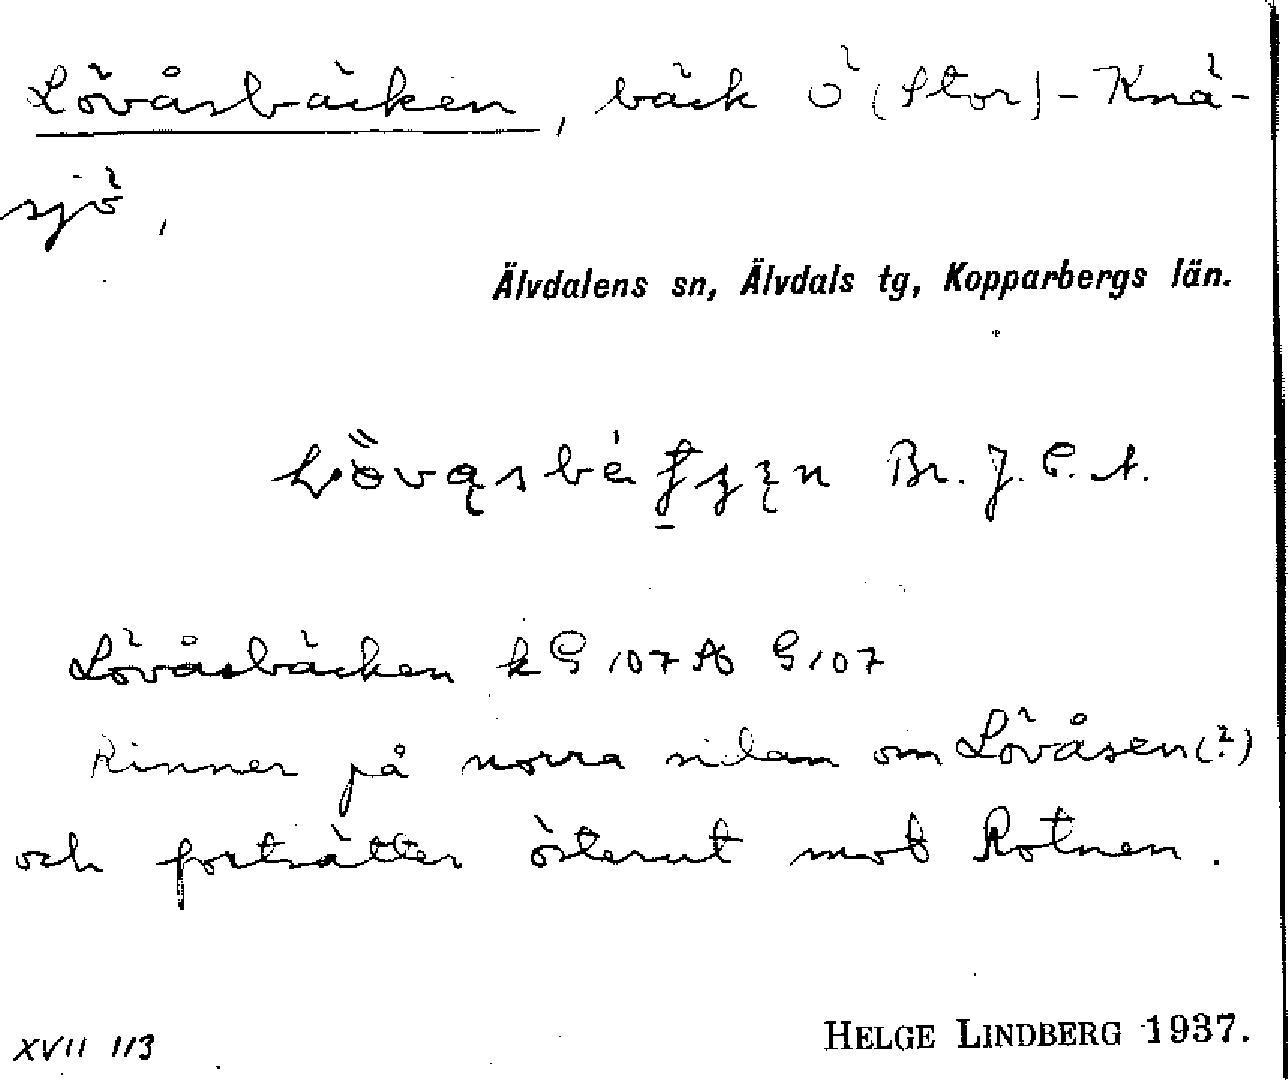 Lövåsbäcken, bäck Ö (Stor)-Knä-
sjö,
Älvdalens sn, Älvdals tg, Kopparbergs län.
Br. J. E. A.
Lövåsbäcken kG 107 Aö G 107
Rinner på norra sidan om Lövåsen(?)
och fortsätter österut mot Rotnen.
XVII 113
HELGE LINDBERG 1937.